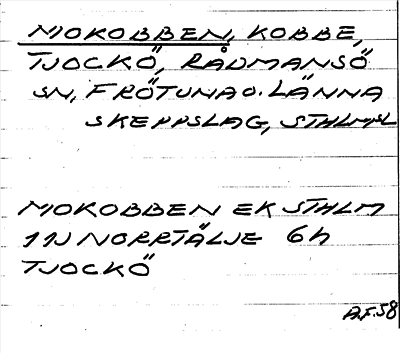 MOKOBBEN, KOBBE,
TJOCKÖ, RÅDMANSÖ
SN, FRÖTUNA O. LÄNNA
SKEPPSLAG, STHLMSL
MOKOBBEN EK STHLM
11J NORRTÄLJE 6h
TJOCKÖ
A.F. 58